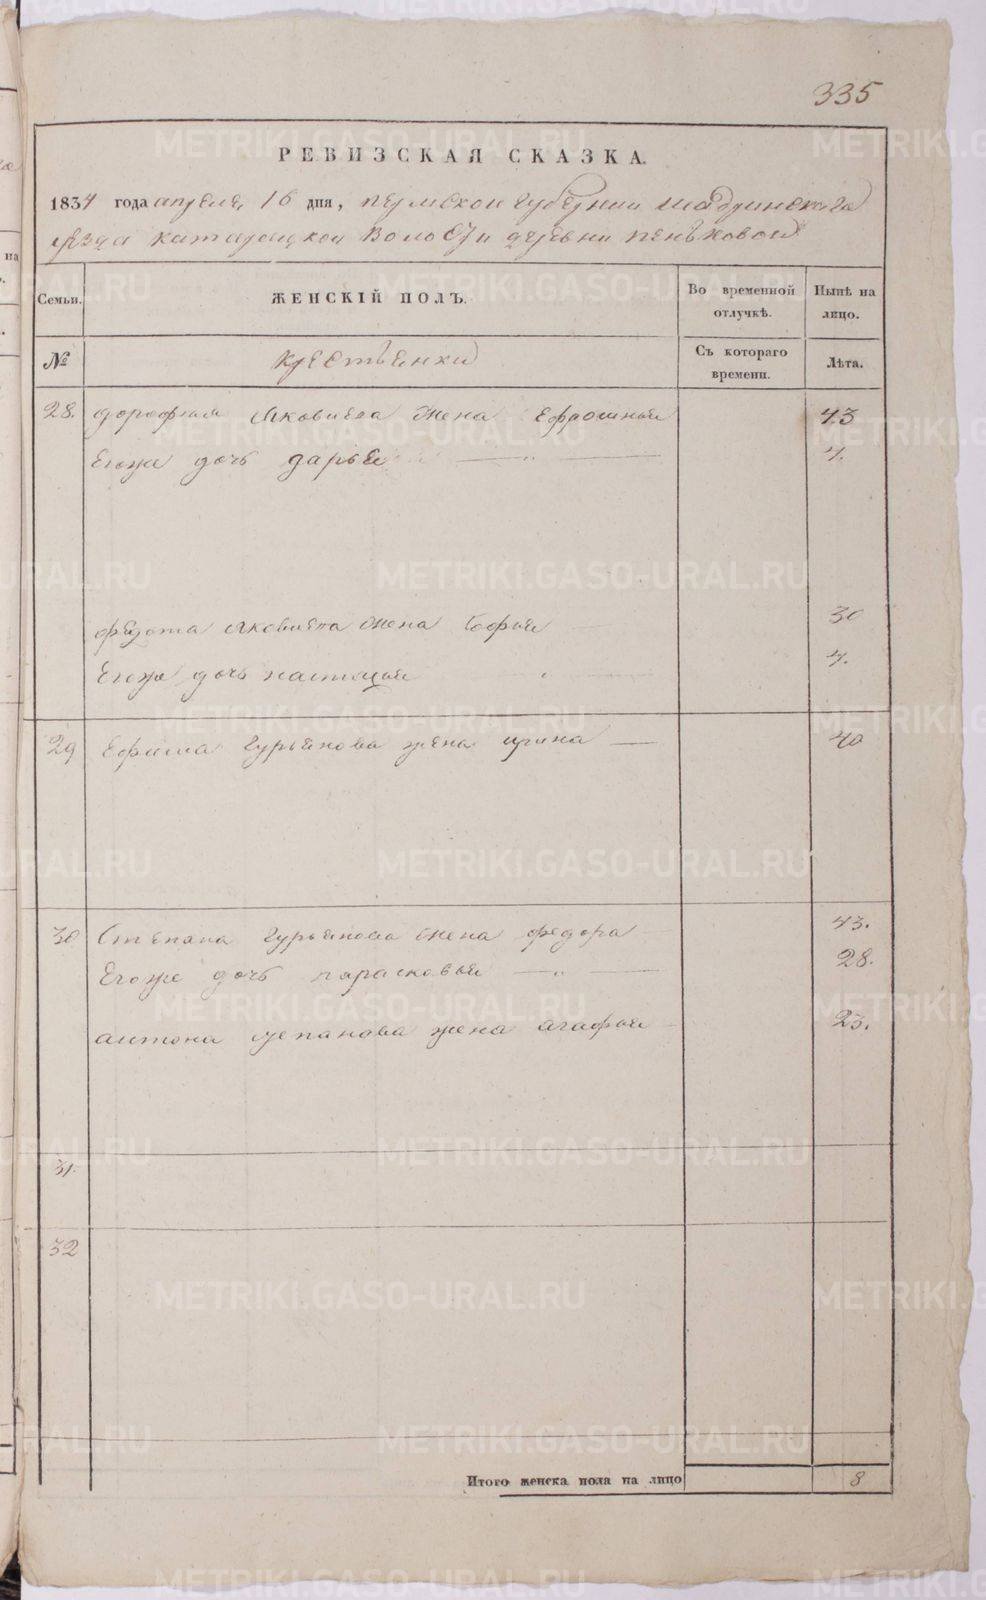 335
РЕВИЗСКАЯ СКАЗКА.
1834 года апреля 16 дня, пермской губернии шадринскаго
уезда катайской волости деревни пеньковой
Семьи.
ЖЕНСКІЙ ПОЛЪ.
Во временной отлучкѣ.
Нынѣ на лицо.
№
крестьянки
Съ котораго времени.
Лѣта.
28. дорофея яковлева жена ефросинья 43
Егоже дочь дарья — „ — 4.
федота яковлева жена софья 30
Егоже дочь настасья „ 4.
29 Ефима гурьянова жена ирина — 40
30 Степана гурьянова жена федора 43.
Егоже дочь парасковья — „ — 28.
антона степанова жена агафья 23.
31.
32
Итого женска пола на лицо 8
METRIKI.GASO-URAL.RU